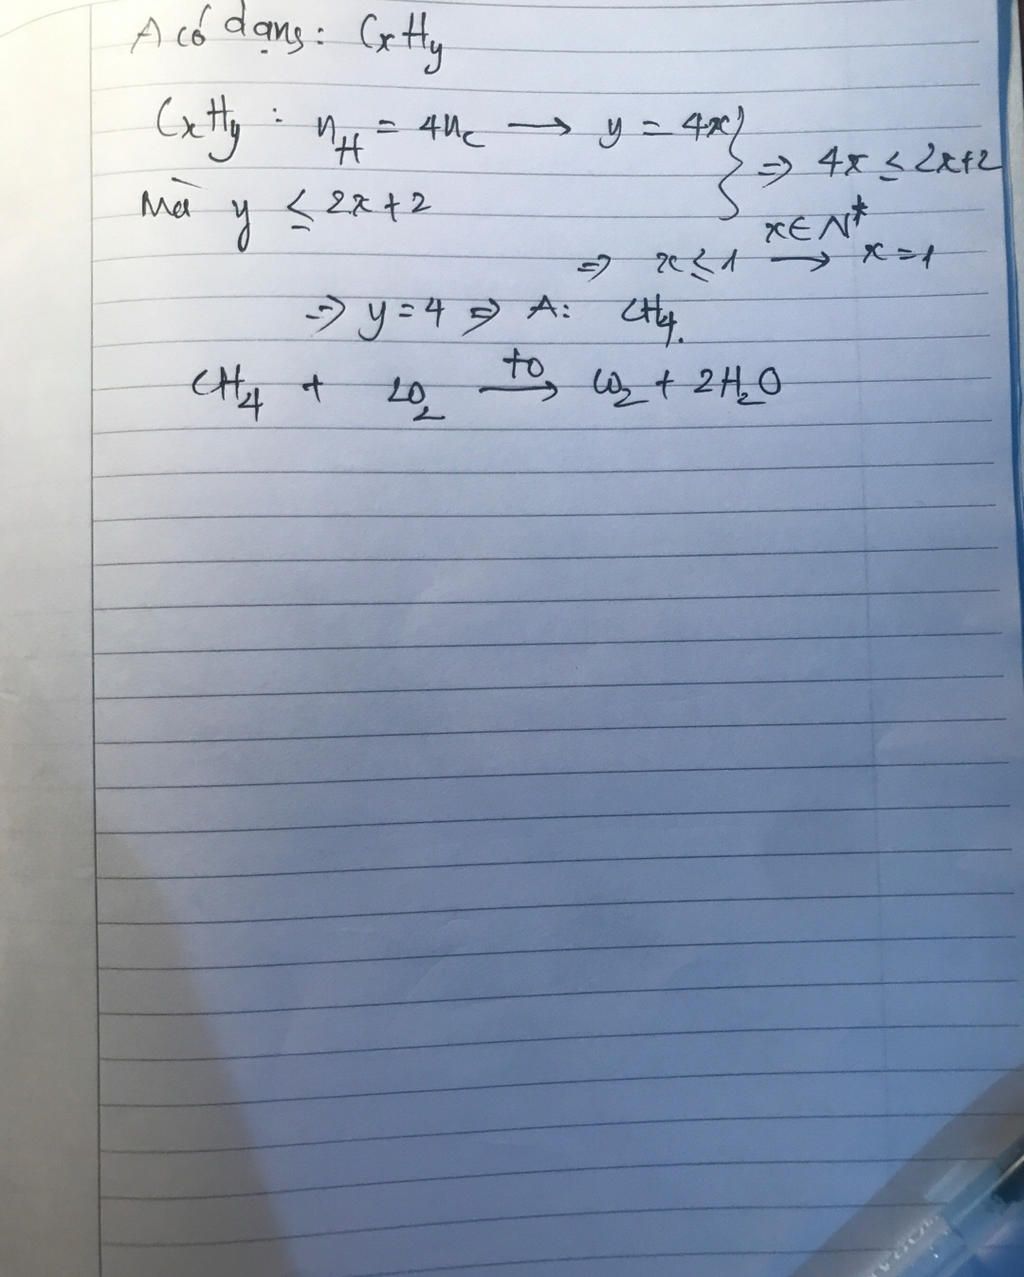 A có dạng: CxHy
CxHy : nH = 4nC → y = 4x
Mà y ≤ 2x + 2 } ⇒ 4x ≤ 2x+2
⇒ x ≤ 1 x∈N* → x = 1
⇒ y = 4 ⇒ A: CH4.
CH4 + 2O2 to → CO2 + 2H2O